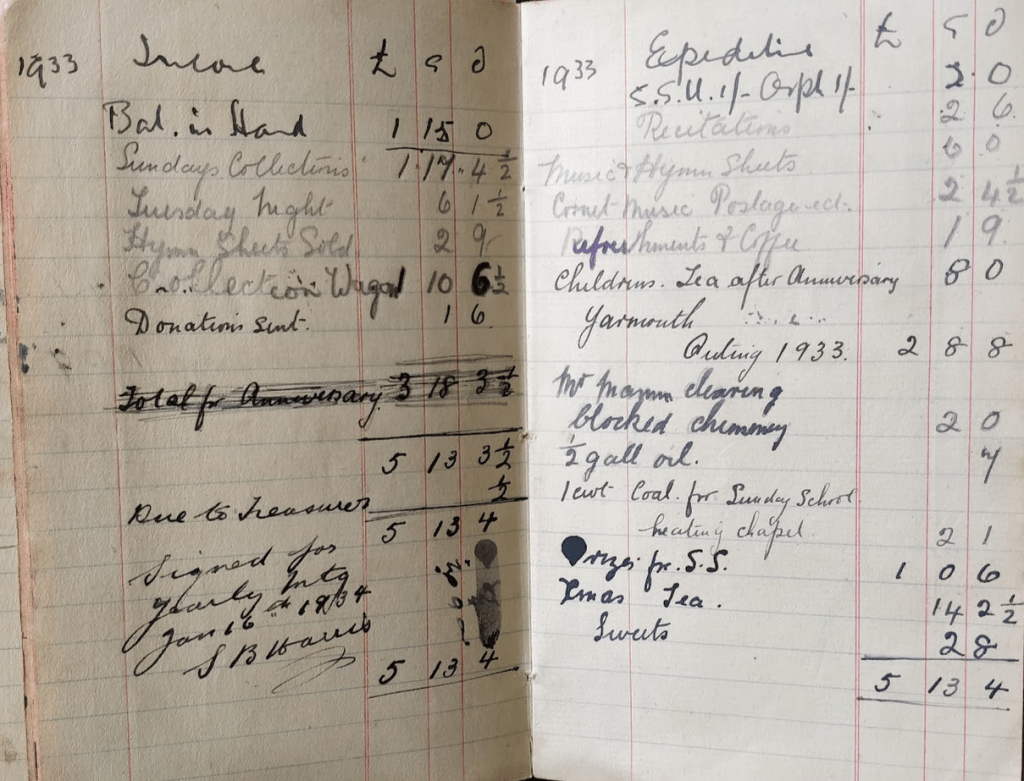 1933 Income £ s d
Bal. in Hand 1 15 0
Sundays Collections 1.17.4½
Tuesday Night 6 1½
Hymn Sheets Sold 2 9
Collection Wagon 10 6½
Donations Sent. 1 6.
Total for Anniversary 3 18 3½
5 13 3½
Due to Treasurer ½
5 13 4
Signed for
Yearly Mtg
Jan 16th 1934
S B Harris
5 13 4
1933 Expeditine £ s d
S.S.U. 1/- Orph 1/- 2 0
Recitations 2 6.
Music & Hymn Sheets 6 0
Cornet Music Postage ect. 2 4½
Refreshments & Coffee 1 9.
Childrens. Tea after Anniversary 8 0
Yarmouth
Outing 1933. 2 8 8
Mr Mann clearing
blocked chimney 2 0
½ gall oil. 7
1 cwt Coal. for Sunday School.
heating chapel. 2 1
Prizes for S.S. 1 0 6
Xmas Tea. 14 2½
Sweets 2 8
5 13 4